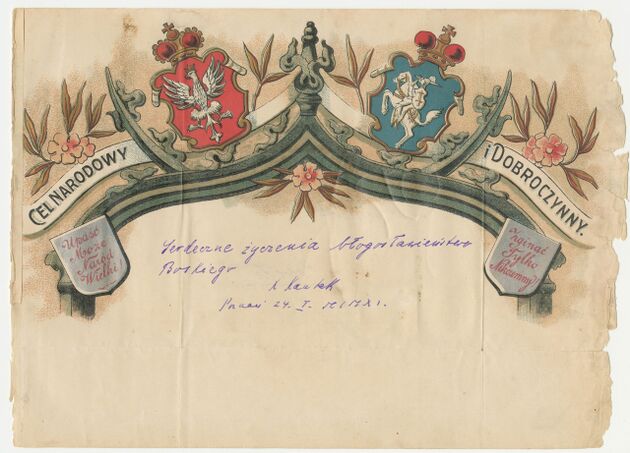 CEL NARODOWY
i DOBROCZYNNY.
Upaść
Może
Naród
Wielki
Zginąć
Tylko
Nikczemny
Serdeczne życzenia błogosławieństwa
Boskiego
Poznań 24. I.